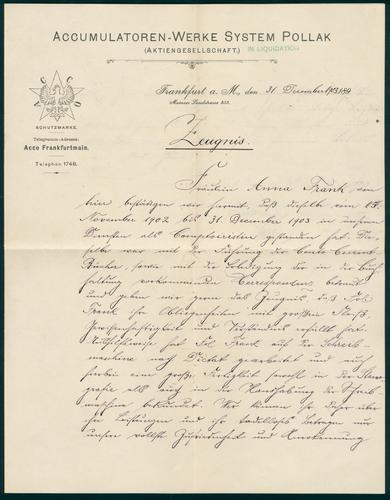 ACCUMULATOREN-WERKE SYSTEM POLLAK
(AKTIENGESELLSCHAFT.) IN LIQUIDATION
SCHUTZMARKE.
Telegramm-Adresse:
Acco Frankfurtmain.
Telephon 1748.
Frankfurt a. M., den 31. December 1903
Mainzer Landstrasse 253.
Zeugnis.
Fräulein Anna Frank von
hier bestätigen wir hiermit, daß dieselbe vom 15.
November 1902 bis 31. December 1903 in unseren
Diensten als Comptoiristin gestanden hat. Die-
selbe war mit der Führung der Conto-Corrent
Bücher, sowie mit der Erledigung der in der Buch-
haltung vorkommenden Correspondenz betraut
und geben wir gerne das Zeugnis, daß Frl.
Frank ihre Obliegenheiten mit großem Fleiß,
Gewissenhaftigkeit und Verständnis erfüllt hat.
Aushilfsweise hat Frl. Frank auf der Schreib-
maschine nach Dictat gearbeitet und auch
hierbei eine große Fertigkeit sowohl in der Steno-
grafie als auch in der Handhabung der Schreib-
maschine bekundet. Wir können ihr daher über
ihre Leistungen und ihr tadelloses Betragen nur
unsere vollste Zufriedenheit und Anerkennung